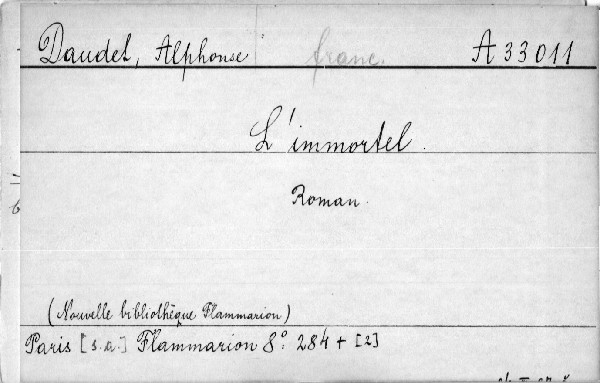 Daudet, Alphonse franc. A 33011
L'immortel.
Roman.
6
(Nouvelle bibliothèque Flammarion)
Paris [s.a.] Flammarion 8° 284 + [2]